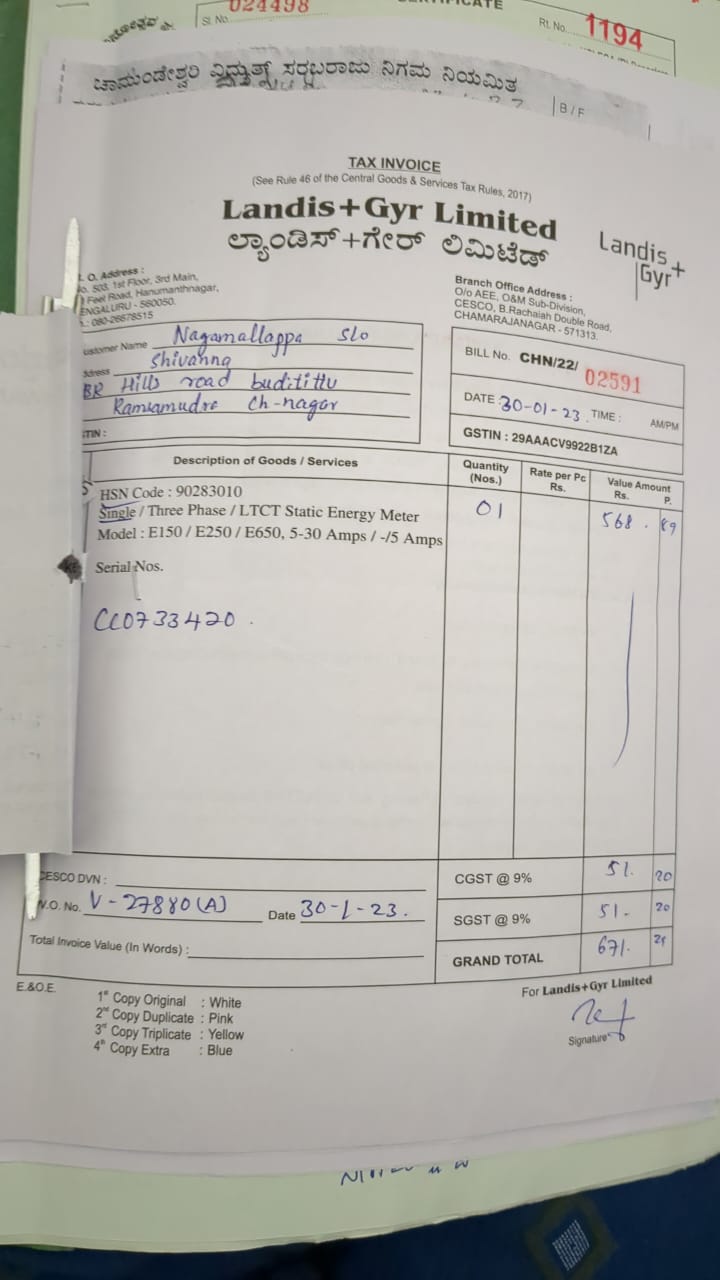 024498
CERTIFICATE
Sl. No.
Rt. No. 1194
ಚಾಮುಂಡೇಶ್ವರಿ ವಿದ್ಯುತ್ ಸರಬರಾಜು ನಿಗಮ ನಿಯಮಿತ
B / F
TAX INVOICE
(See Rule 46 of the Central Goods & Services Tax Rules, 2017)
Landis+Gyr Limited
ಲ್ಯಾಂಡಿಸ್+ಗೇರ್ ಲಿಮಿಟೆಡ್
Landis+
Gyr
O. Address :
503, 1st Floor, 3rd Main,
Feet Road, Hanumanthnagar,
ENGALURU - 560050.
080-26678515
Branch Office Address :
O/o AEE, O&M Sub-Division,
CESCO, B.Rachaiah Double Road,
CHAMARAJANAGAR - 571313.
ustomer Name Nagamallappa S/o
ddress Shivanna
BR Hills road buditittu
Ramsamudra Ch-nagar
TIN :
BILL No. CHN/22/ 02591
DATE : 30-01-23 TIME : AM/PM
GSTIN : 29AAACV9922B1ZA
Description of Goods / Services
Quantity (Nos.)
Rate per Pc Rs.
Value Amount Rs. P.
HSN Code : 90283010
Single / Three Phase / LTCT Static Energy Meter 01 568. 89
Model : E150 / E250 / E650, 5-30 Amps / -/5 Amps
Serial Nos.
CC0733420.
CESCO DVN :
CGST @ 9% 51. 20
W.O. No. V-27880(A) Date 30-1-23.
SGST @ 9% 51. 20
Total Invoice Value (In Words) :
GRAND TOTAL 671. 29
E.&O.E.
1st Copy Original : White
2nd Copy Duplicate : Pink
3rd Copy Triplicate : Yellow
4th Copy Extra : Blue
For Landis+Gyr Limited
Signature